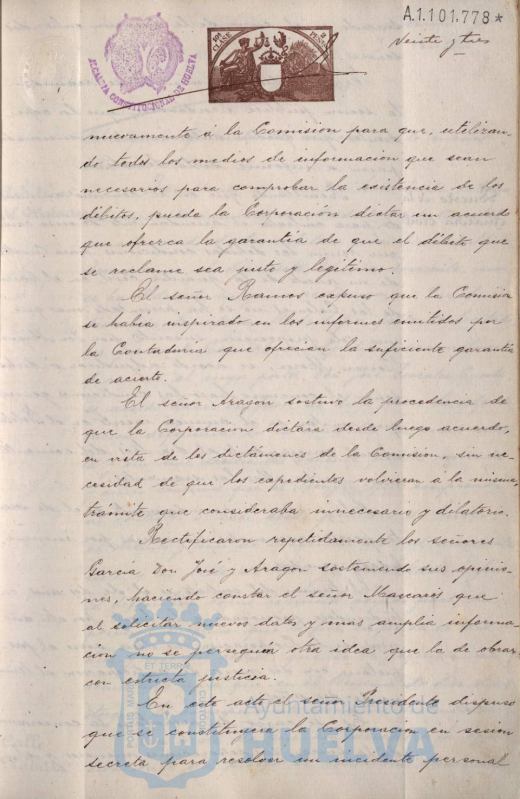 A.1.101.778*
veinte y tres
ALCALDIA CONSTITUCIONAL DE HUELVA
nuevamente á la Comisión para que, utilizan-
do todos los medios de información que sean
necesarios para comprobar la existencia de los
débitos, pueda la Corporación dictar un acuerdo
que ofrezca la garantía de que el débito que
se reclame sea justo y legítimo.
El señor Ramos expuso que la Comisión
se había inspirado en los informes emitidos por
la Contaduría que ofrecían la suficiente garantía
de acierto.
El señor Aragon sostuvo la procedencia de
que la Corporación dictára desde luego acuerdo,
en vista de los dictámenes de la Comisión, sin ne-
cesidad de que los expedientes volvieran á la misma,
trámite que consideraba innecesario y dilatorio.
Rectificaron repetidamente los señores
García Don José y Aragon sosteniendo sus opinio-
nes, haciendo constar el señor Mascarós que
al solicitar nuevos datos y mas amplia informa-
ción no se perseguía otra idea que la de obrar
con estricta justicia.
En este acto el señor Presidente dispuso
que se constituyera la Corporación en sesión
secreta para resolver un incidente personal
Ayuntamiento de
HUELVA